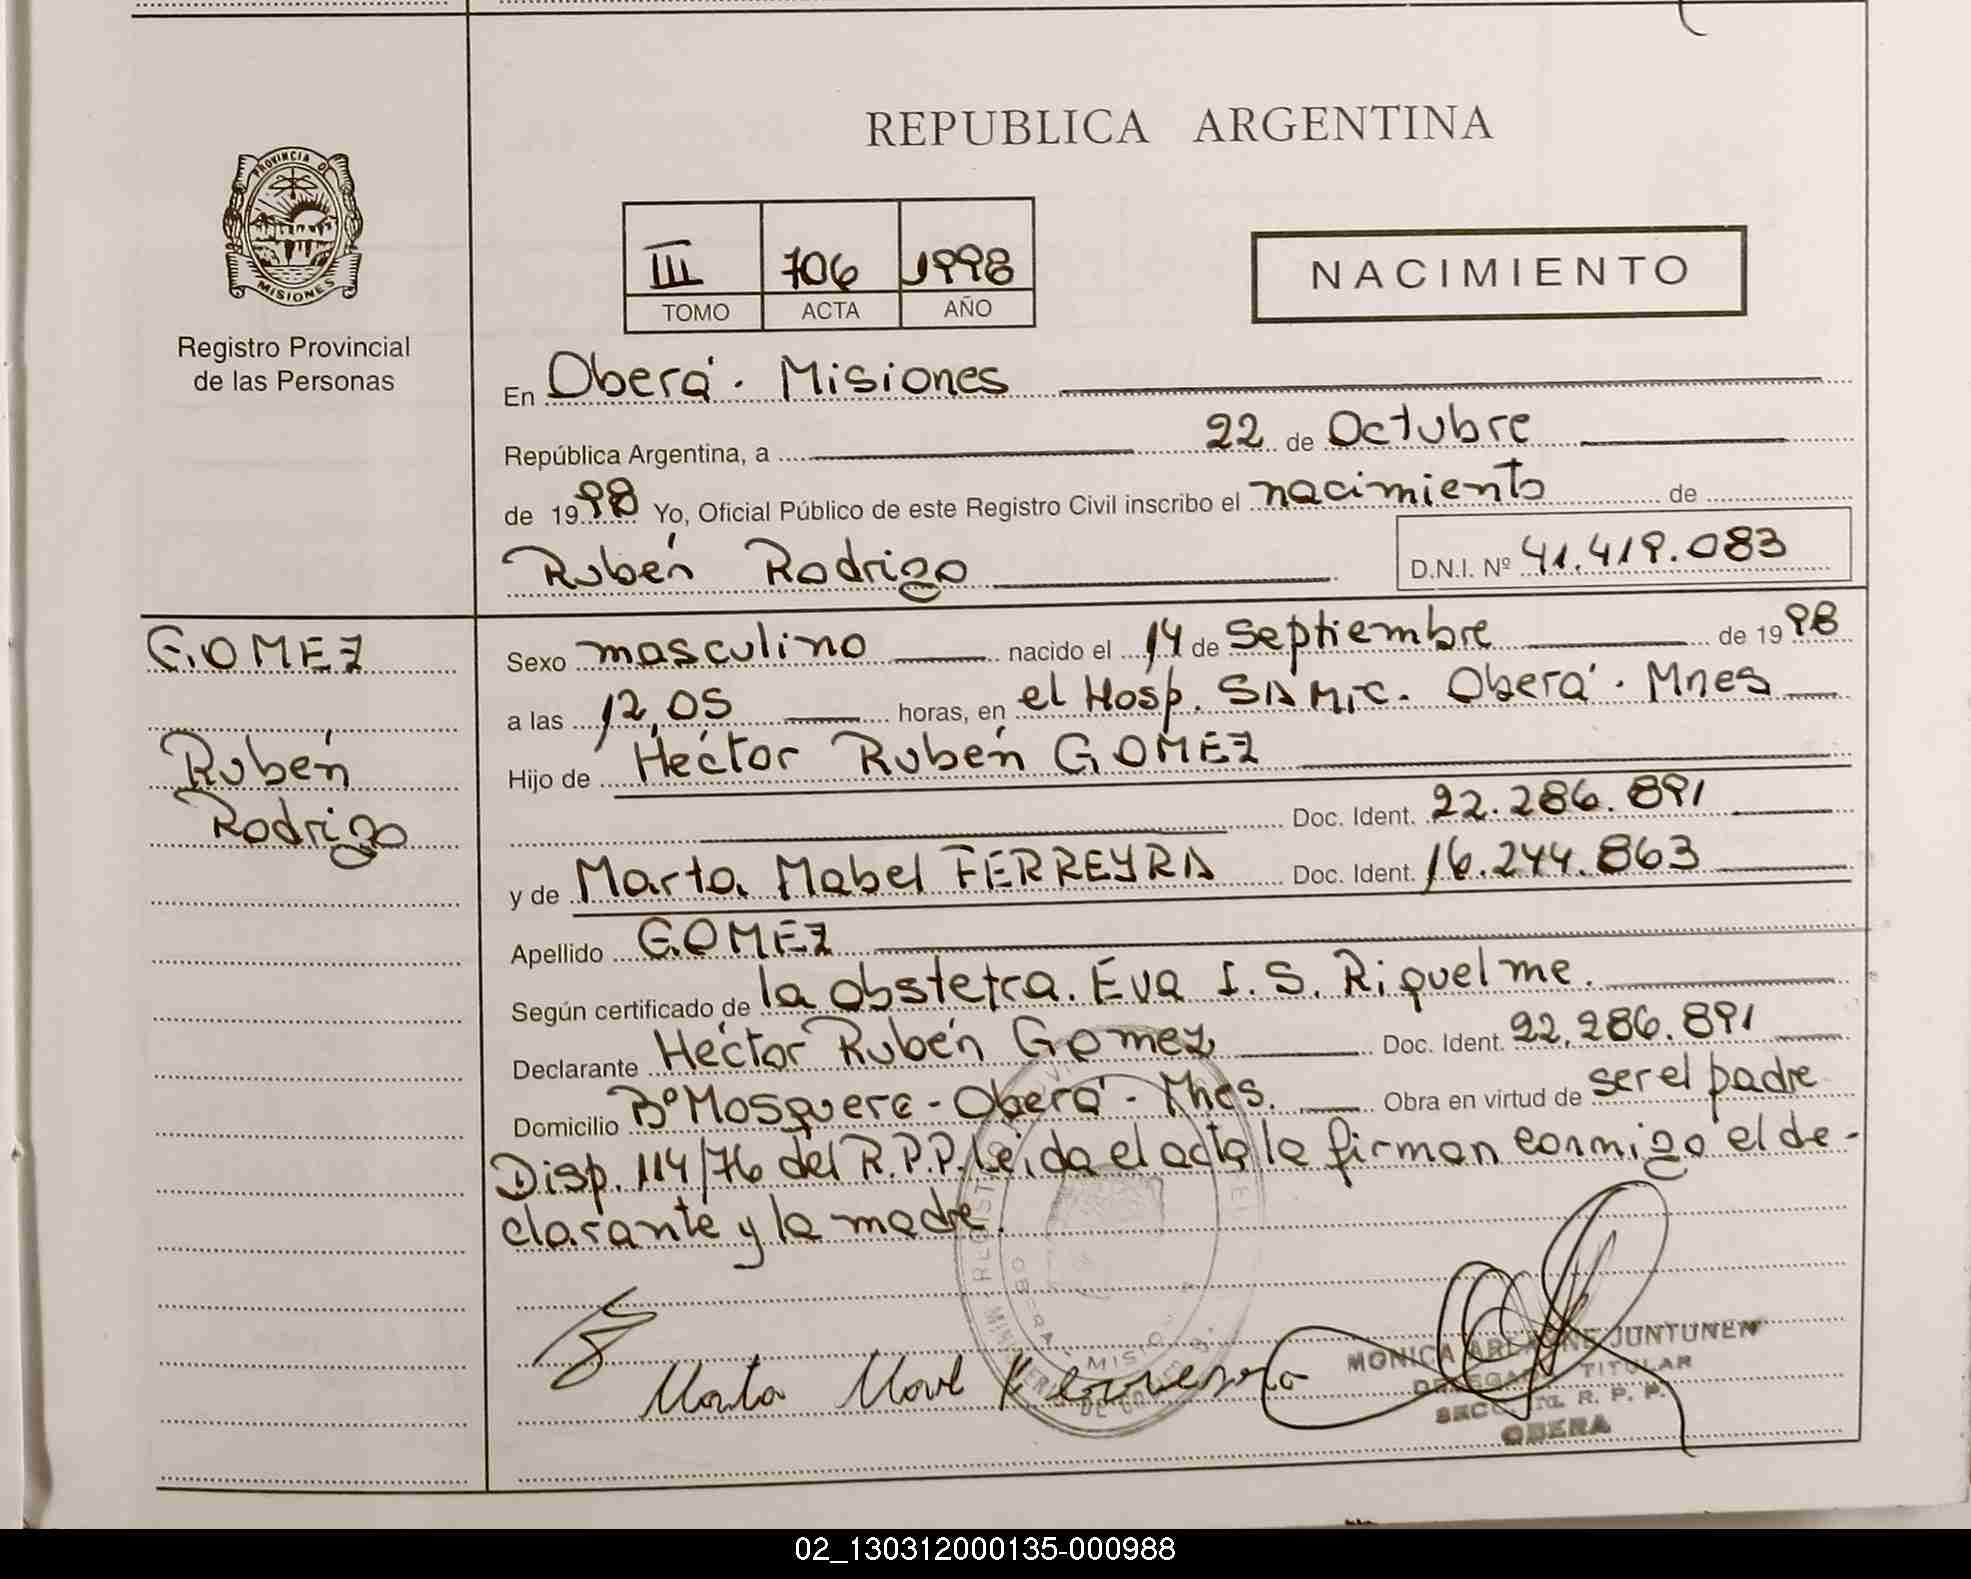 REPUBLICA ARGENTINA
PROVINCIA DE
MISIONES
Registro Provincial
de las Personas
III 706 1998
TOMO ACTA AÑO
NACIMIENTO
En Oberá. Misiones
República Argentina, a 22 de Octubre
de 1998 Yo, Oficial Público de este Registro Civil inscribo el nacimiento de
Rubén Rodrigo D.N.I. Nº 41.419.083
GOMEZ
Rubén
Rodrigo
Sexo masculino nacido el 14 de Septiembre de 1998
a las 12,05 horas, en el Hosp. SAMIC. Oberá. Mnes
Hijo de Héctor Rubén GOMEZ
Doc. Ident. 22.286.891
y de Marta Mabel FERREYRA Doc. Ident. 16.244.863
Apellido GOMEZ
Según certificado de la obstetra. Eva I. S. Riquelme.
Declarante Héctor Rubén Gomez Doc. Ident. 22.286.891
Domicilio Bº Mosquera - Oberá - Mnes. Obra en virtud de ser el padre
Disp. 114/76 del R.P.P. Leida el acta la firman conmigo el de-
clarante y la madre.
Marta
MONICA JUNTUNEN
TITULAR
R. P. P.
OBERA
02_130312000135-000988